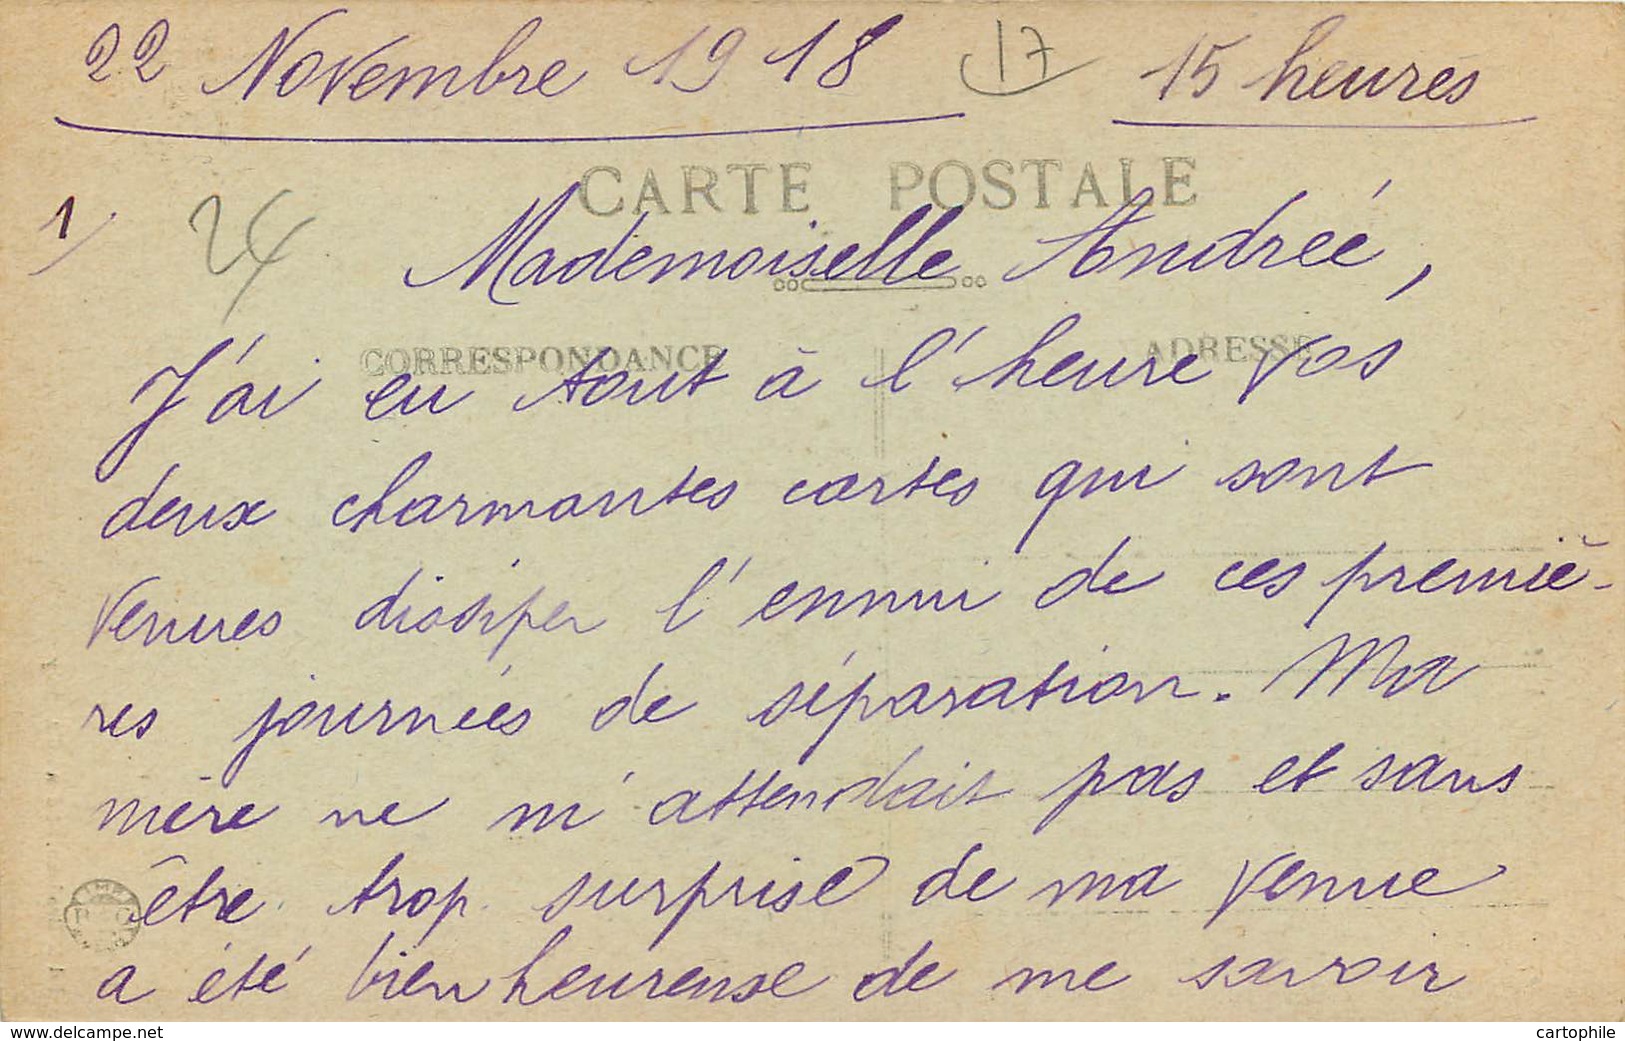 22 Novembre 1918 17 15 heures
CARTE POSTALE
1/ 24 Mademoiselle Andrée,
CORRESPONDANCE ADRESSE
J'ai eu tout à l'heure vos
deux charmantes cartes qui sont
venues dissiper l'ennui de ces premiè-
res journées de séparation. Ma
mère ne m'attendait pas et sans
être trop surprise de ma venue
a été bien heureuse de me savoir
www.delcampe.net
cartophile